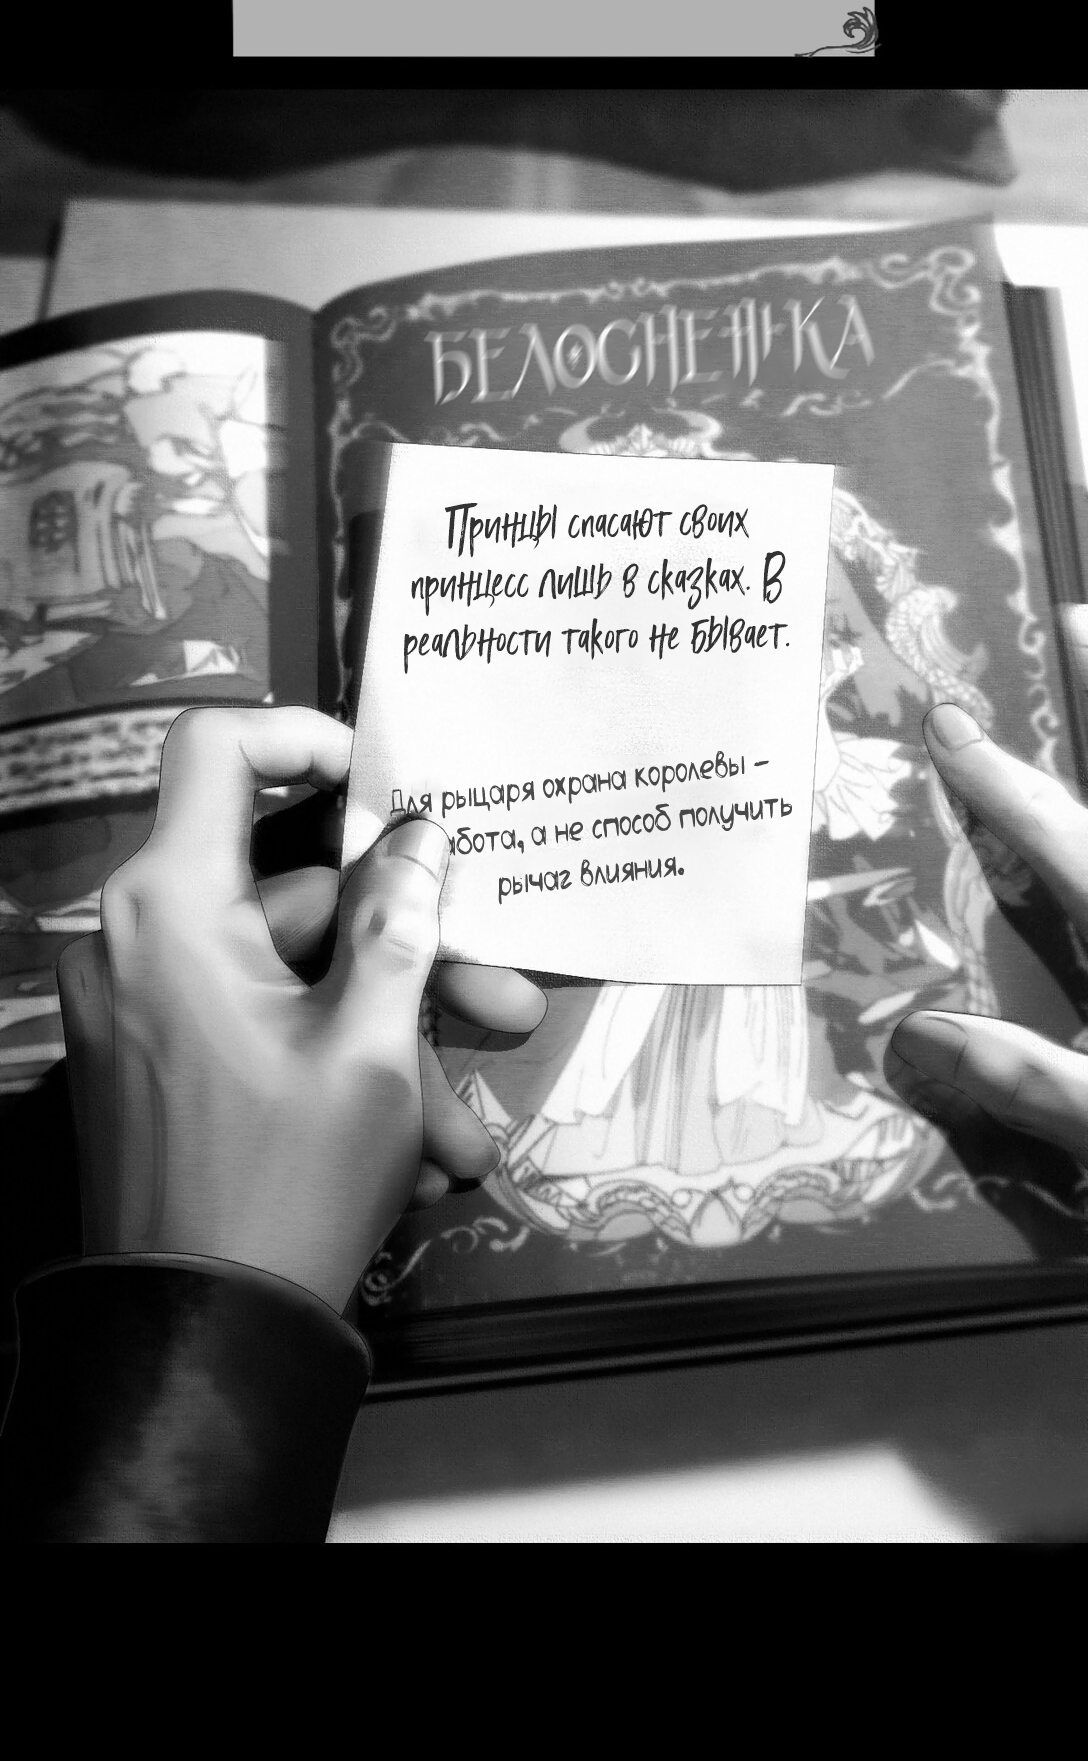 БЕЛОСНЕЖКА
Принцы спасают своих
принцесс лишь в сказках. В
реальности такого не бывает.
Для рыцаря охрана королевы –
абота, а не способ получить
рычаг влияния.